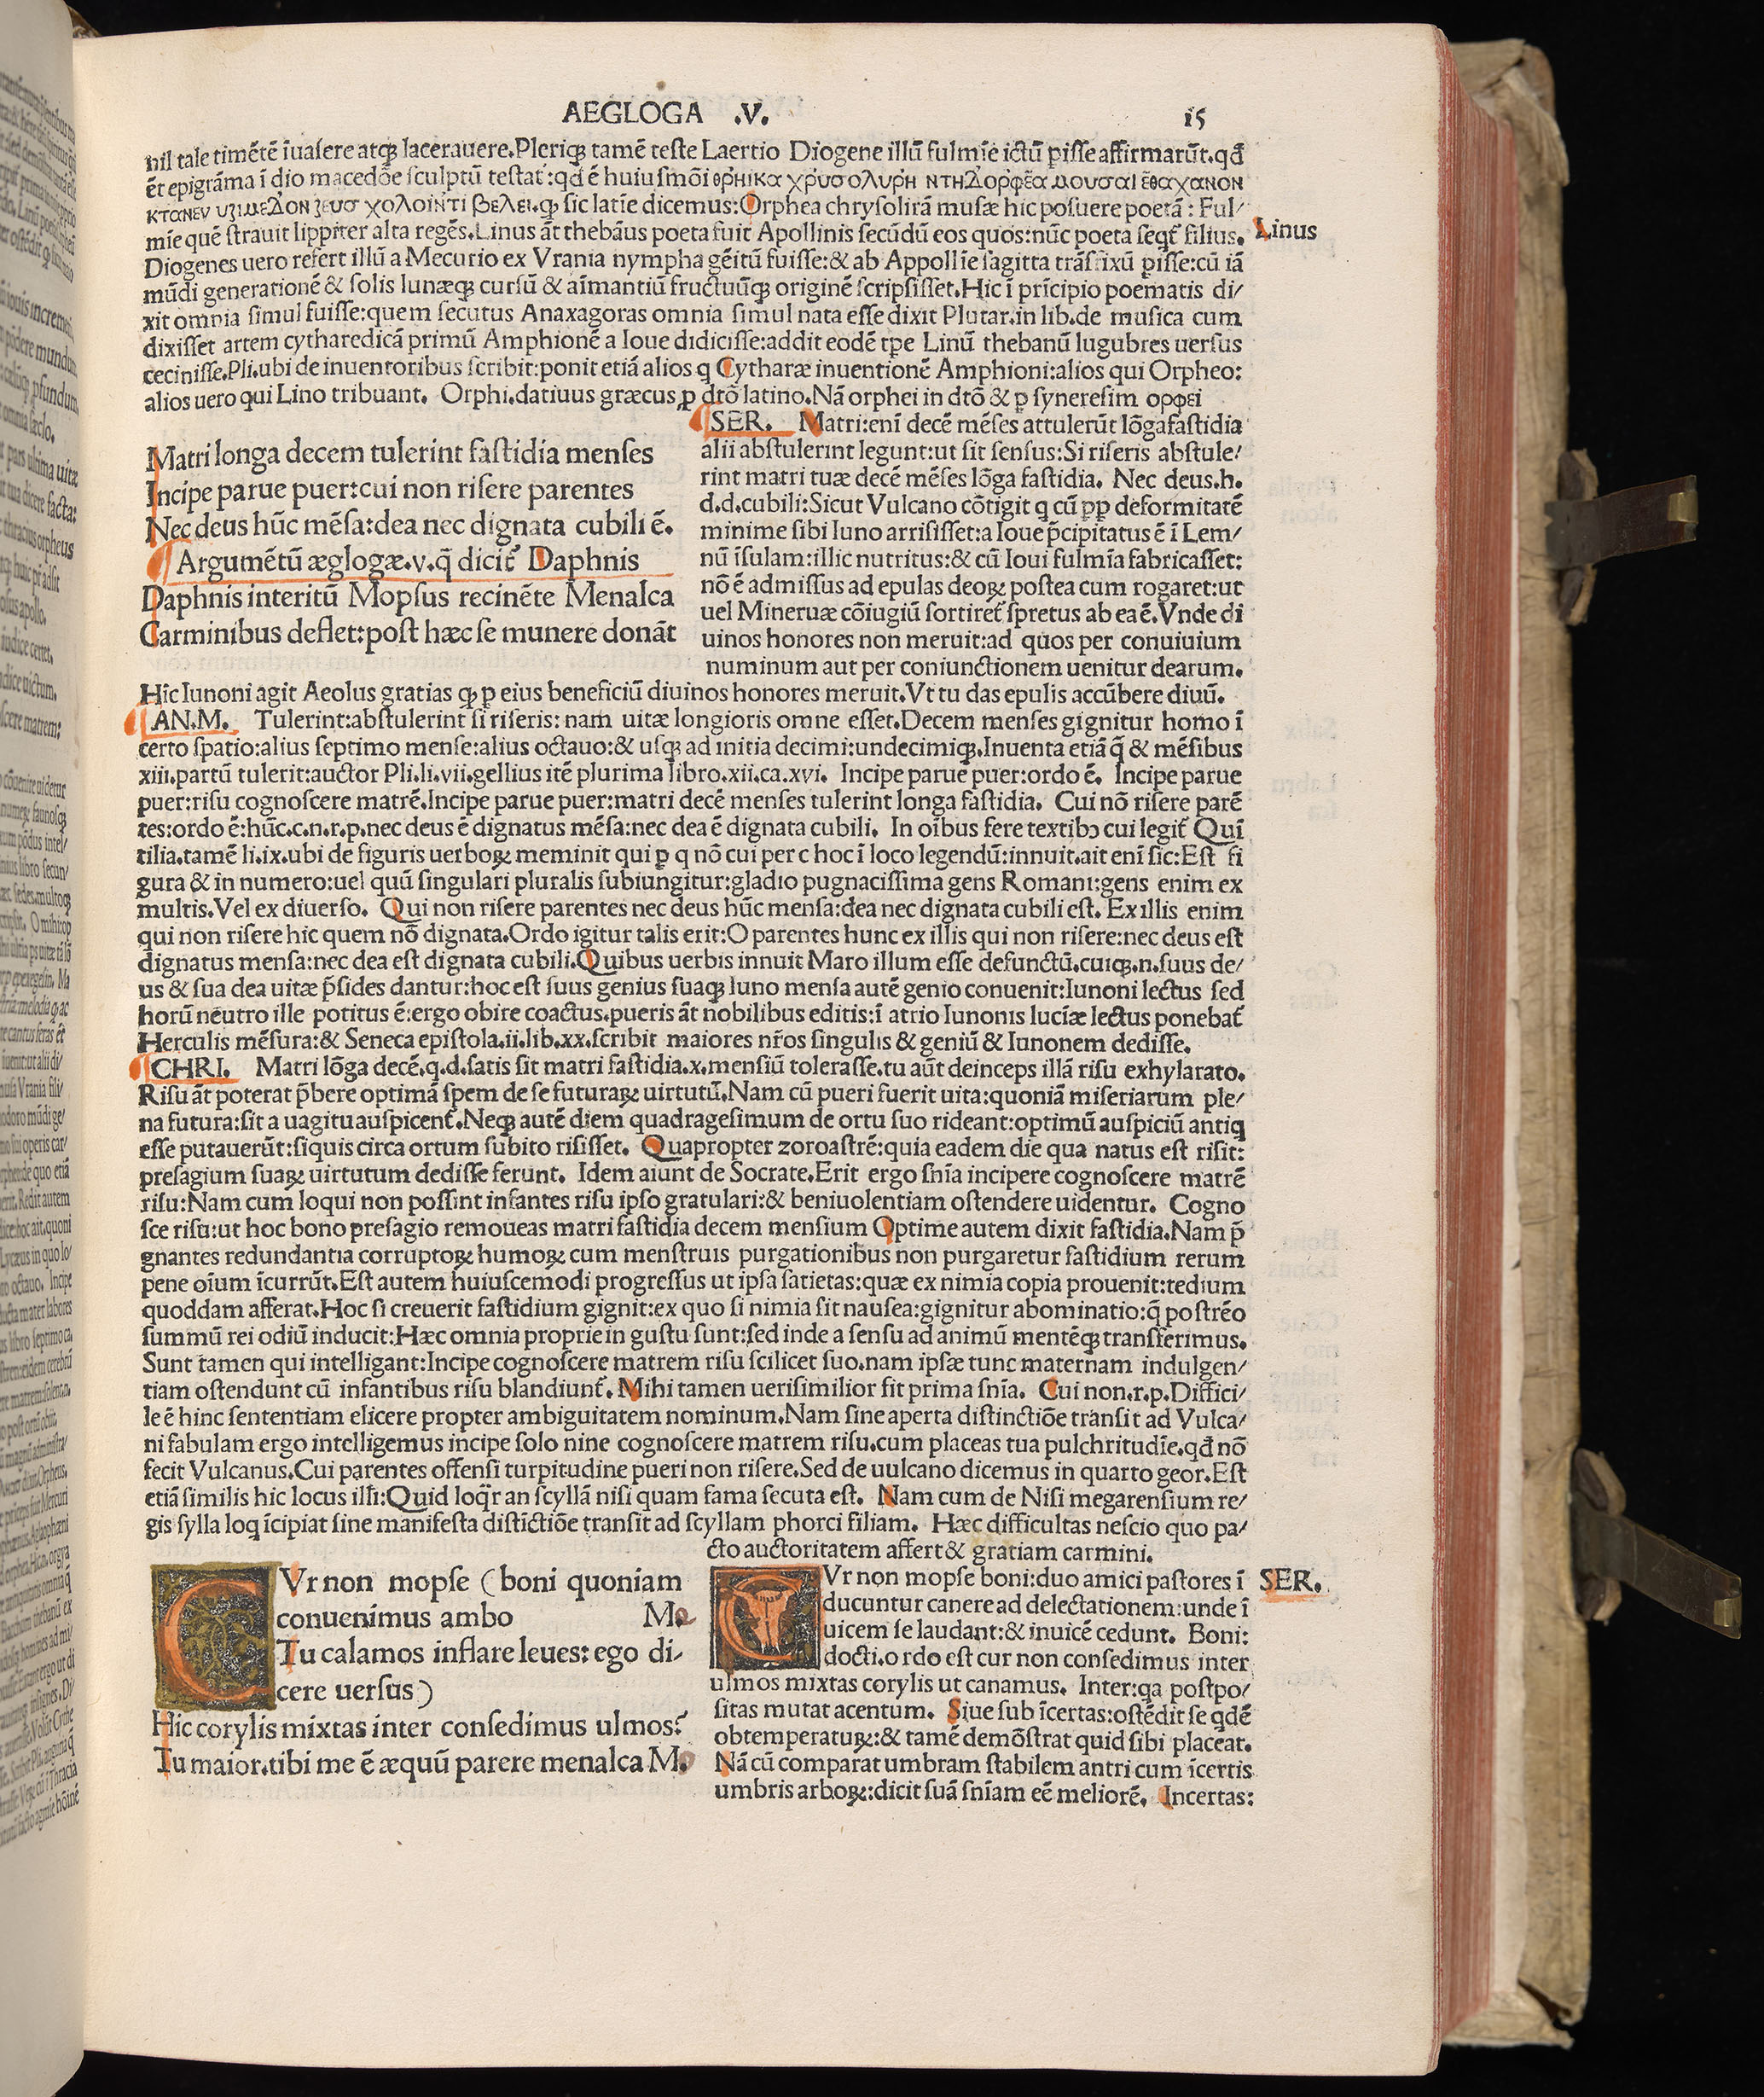 AEGLOGA .V. 15
nil tale timẽtẽ ĩuaſere atqꝫ lacerauere.Pleriqꝫ tamẽ teſte Laertio Diogene illũ fulmĩe ictũ ꝑiſſe affirmarũt.qđ
ẽt epigrãma ĩ dio macedõe ſculptũ teſtat᷑:qđ ẽ huiuſmõi θρηικα χρυσολυρη ντηΔορφεα μουσαι εθαχανον
κτανεν υζιμεΔον ζευσ χολοιντι βελει.qꝫ ſic latĩe dicemus:Orphea chryſolirã muſæ hic poſuere poetã: Ful/
mĩe quẽ ſtrauit lippiter alta regẽs.Linus ãt thebãus poeta fuit Apollinis ſecũdũ eos quos:nũc poeta ſeqt᷑ filius.
Linus
Diogenes uero refert illũ a Mecurio ex Vrania nympha gẽitũ fuiſſe:& ab Appollĩe ſagitta trãſfixũ ꝑiſſe:cũ iã
mũdi generationẽ & ſolis lunæqꝫ curſũ & aĩmantiũ fructuũqꝫ originẽ ſcripſiſſet.Hic ĩ prĩcipio poematis di/
xit omnia ſimul fuiſſe:quem ſecutus Anaxagoras omnia ſimul nata eſſe dixit Plutar.in lib.de muſica cum
dixiſſet artem cytharedicã primũ Amphionẽ a Ioue didiciſſe:addit eodẽ tꝑe Linũ thebanũ lugubres uerſus
ceciniſſe.Pli.ubi de inuentoribus ſcribit:ponit etiã alios q Cytharæ inuentionẽ Amphioni:alios qui Orpheo:
alios uero qui Lino tribuant. Orphi.datiuus græcus,ꝓ dtõ latino.Nã orphei in dtõ & ꝑ ſynereſim ορφει
Matri longa decem tulerint faſtidia menſes
Incipe parue puer:cui non riſere parentes
Nec deus hũc mẽſa:dea nec dignata cubili ẽ.
Argumẽtũ æglogæ.v.q̃ dicit᷑ Daphnis
Daphnis interitũ Mopſus recinẽte Menalca
Carminibus deflet:poſt hæc ſe munere donãt
SER. Matri:enĩ decẽ mẽſes attulerũt lõga faſtidia
alii abſtulerint legunt:ut ſit ſenſus:Si riſeris abſtule/
rint matri tuæ decẽ mẽſes lõga faſtidia. Nec deus.h.
d.d.cubili:Sicut Vulcano cõtigit q cũ ꝓꝑ deformitatẽ
minime ſibi Iuno arriſiſſet:a Ioue p̃cipitatus ẽ ĩ Lem/
nũ ĩſulam:illic nutritus:& cũ Ioui fulmĩa fabricaſſet:
nõ ẽ admiſſus ad epulas deoꝝ poſtea cum rogaret:ut
uel Mineruæ cõiugiũ ſortiret᷑ ſpretus ab ea ẽ.Vnde di
uinos honores non meruit:ad quos per conuiuium
numinum aut per coniunctionem uenitur dearum.
Hĩc Iunoni agit Aeolus gratias qꝫ ꝑ eius beneficiũ diuinos honores meruit.Vt tu das epulis accũbere diuũ.
AN.M. Tulerint:abſtulerint ſi riſeris: nam uitæ longioris omne eſſet.Decem menſes gignitur homo ĩ
certo ſpatio:alius ſeptimo menſe:alius octauo:& uſqꝫ ad initia decimi:undecimiqꝫ.Inuenta etiã q̃ & mẽſibus
xiii.partũ tulerit:auctor Pli.li.vii.gellius itẽ plurima libro.xii.ca.xvi. Incipe parue puer:ordo ẽ. Incipe parue
puer:riſu cognoſcere matrẽ.Incipe parue puer:matri decẽ menſes tulerint longa faſtidia. Cui nõ riſere parẽ
tes:ordo ẽ:hũc.c.n.r.p.nec deus ẽ dignatus mẽſa:nec dea ẽ dignata cubili. In oĩbus fere textibꝰ cui legit᷑ Quĩ
tilia.tamẽ li.ix.ubi de figuris uerboꝝ meminit qui ꝑ q nõ cui per c hoc ĩ loco legendũ:innuit.ait enĩ ſic:Eſt fi
gura & in numero:uel quũ ſingulari pluralis ſubiungitur:gladio pugnaciſſima gens Romani:gens enim ex
multis.Vel ex diuerſo. Qui non riſere parentes nec deus hũc menſa:dea nec dignata cubili eſt. Ex illis enim
qui non riſere hic quem nõ dignata.Ordo igitur talis erit:O parentes hunc ex illis qui non riſere:nec deus eſt
dignatus menſa:nec dea eſt dignata cubili.Quibus uerbis innuit Maro illum eſſe defunctũ.cuiqꝫ.n.ſuus de/
us & ſua dea uitæ p̃ſides dantur:hoc eſt ſuus genius ſuaqꝫ Iuno menſa autẽ genio conuenit:Iunoni lectus ſed
horũ neutro ille potitus ẽ:ergo obire coactus.pueris ãt nobilibus editis:ĩ atrio Iunonis lucĩæ lectus ponebat᷑
Herculis mẽſura:& Seneca epiſtola.ii.lib.xx.ſcribit maiores nr̃os ſingulis & geniũ & Iunonem dediſſe.
CHRI. Matri lõga decẽ.q.d.ſatis ſit matri faſtidia.x.menſiũ toleraſſe.tu aũt deinceps illã riſu exhylarato.
Riſu ãt poterat p̃bere optimã ſpem de ſe futuraꝝ uirtutũ.Nam cũ pueri fuerit uita:quoniã miſeriarum ple/
na futura:ſit a uagitu auſpicent᷑.Neqꝫ autẽ diem quadrageſimum de ortu ſuo rideant:optimũ auſpiciũ antiq
eſſe putauerũt:ſiquis circa ortum ſubito riſiſſet. Quapropter zoroaſtrẽ:quia eadem die qua natus eſt riſit:
preſagium ſuaꝝ uirtutum dediſſe ferunt. Idem aiunt de Socrate.Erit ergo ſnĩa incipere cognoſcere matrẽ
riſu:Nam cum loqui non poſſint infantes riſu ipſo gratulari:& beniuolentiam oſtendere uidentur. Cogno
ſce riſu:ut hoc bono preſagio remoueas matri faſtidia decem menſium Optime autem dixit faſtidia.Nam p̃
gnantes redundantia corruptoꝝ humoꝝ cum menſtruis purgationibus non purgaretur faſtidium rerum
pene oĩum ĩcurrũt.Eſt autem huiuſcemodi progreſſus ut ipſa ſatietas:quæ ex nimia copia prouenit:tedium
quoddam afferat.Hoc ſi creuerit faſtidium gignit:ex quo ſi nimia ſit nauſea:gignitur abominatio:q̃ poſtrẽo
ſummũ rei odiũ inducit:Hæc omnia proprie in guſtu ſunt:ſed inde a ſenſu ad animũ mentẽqꝫ tranſferimus.
Sunt tamen qui intelligant:Incipe cognoſcere matrem riſu ſcilicet ſuo.nam ipſæ tunc maternam indulgen/
tiam oſtendunt cũ infantibus riſu blandiunt᷑. Mihi tamen ueriſimilior fit prima ſnĩa. Cui non.r.p.Diffici/
le ẽ hinc ſententiam elicere propter ambiguitatem nominum.Nam ſine aperta diſtinctiõe tranſit ad Vulca/
ni fabulam ergo intelligemus incipe ſolo nine cognoſcere matrem riſu.cum placeas tua pulchritudĩe.qđ nõ
fecit Vulcanus.Cui parentes offenſi turpitudine pueri non riſere.Sed de uulcano dicemus in quarto geor.Eſt
etiã ſimilis hic locus illĩ:Quid loq̃r an ſcyllã niſi quam fama ſecuta eſt. Nam cum de Niſi megarenſium re/
gis ſylla loq ĩcipiat ſine manifeſta diſtĩctiõe tranſit ad ſcyllam phorci filiam. Hæc difficultas neſcio quo pa/
cto auctoritatem affert & gratiam carmini.
CVr non mopſe (boni quoniam
conuenimus ambo M.
Tu calamos inflare leues: ego di/
cere uerſus)
Hic corylis mixtas inter conſedimus ulmos?
Tu maior.tibi me ẽ æquũ parere menalca M.
CVr non mopſe boni:duo amici paſtores ĩ
SER.
ducuntur canere ad delectationem:unde ĩ
uicem ſe laudant:& inuicẽ cedunt. Boni:
docti.ordo eſt cur non conſedimus inter
ulmos mixtas corylis ut canamus. Inter:qa poſtpo/
ſitas mutat acentum. Siue ſub ĩcertas:oſtẽdit ſe qdẽ
obtemperatuꝝ:& tamẽ demõſtrat quid ſibi placeat.
Nã cũ comparat umbram ſtabilem antri cum ĩcertis
umbris arboꝝ:dicit ſuã ſnĩam eẽ meliorẽ. Incertas: